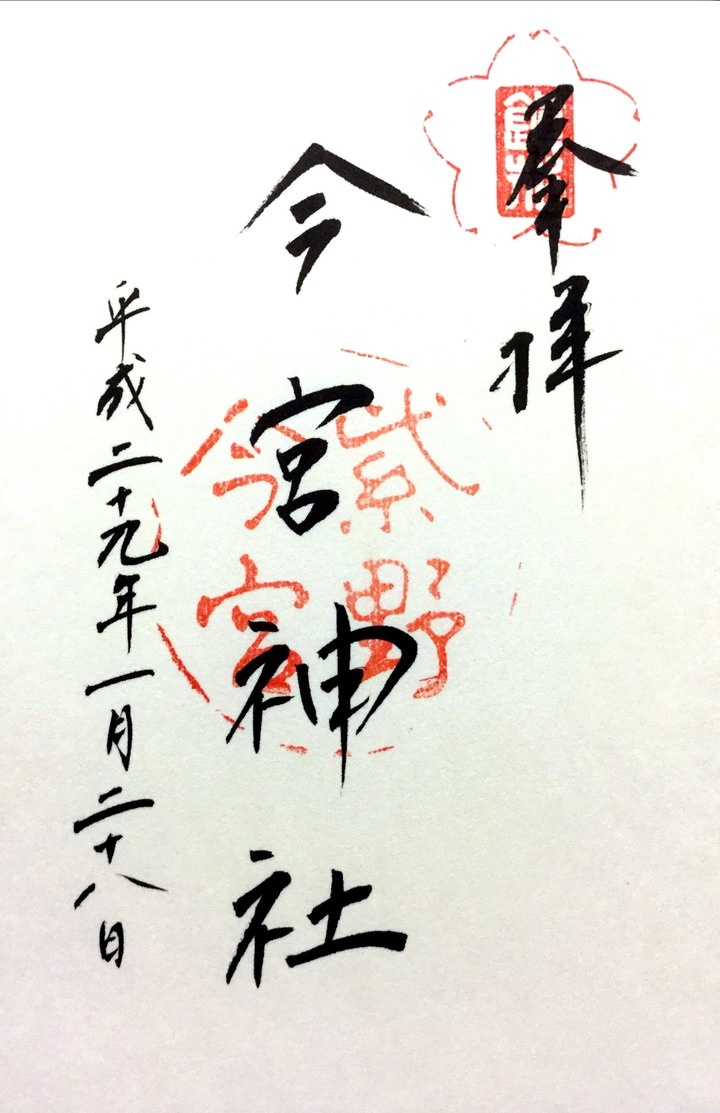 奉拝
今宮神社
紫野
今宮
平成二十九年一月二十八日